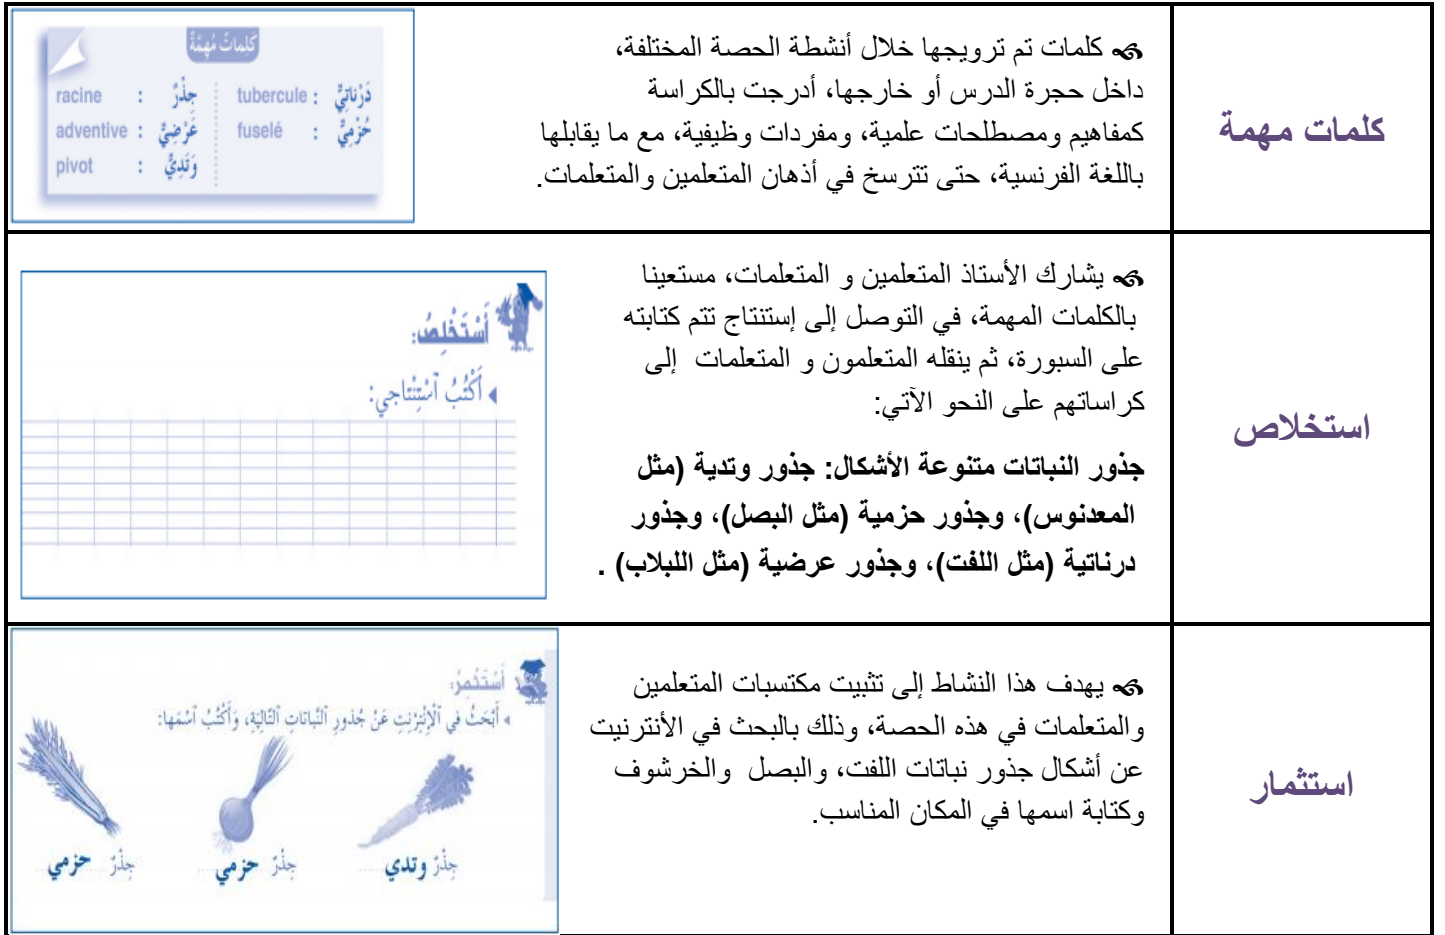 كلمات مهمة
؈ كلمات تم ترويجها خلال أنشطة الحصة المختلفة،
داخل حجرة الدرس أو خارجها، أدرجت بالكراسة
كمفاهيم ومصطلحات علمية، ومفردات وظيفية، مع ما يقابلها
باللغة الفرنسية، حتى تترسخ في أذهان المتعلمين والمتعلمات.
كَلِماتٌ مُهِمَّةٌ
دَرْناتِيٌّ : tubercule
حُزْمِيٌّ : fuselé
جِذْرٌ : racine
عَرَضِيٌّ : adventive
وَتَدِيٌّ : pivot
استخلاص
يشارك الأستاذ المتعلمين و المتعلمات، مستعينا
بالكلمات المهمة، في التوصل إلى إستنتاج تتم كتابته
على السبورة، ثم ينقله المتعلمون و المتعلمات إلى
كراساتهم على النحو الآتي:
جذور النباتات متنوعة الأشكال: جذور وتدية (مثل
المعدنوس)، وجذور حزمية (مثل البصل)، وجذور
درناتية (مثل اللفت)، وجذور عرضية (مثل اللبلاب) .
أَسْتَخْلِصُ:
أَكْتُبُ ٱسْتِنْتاجي:
استثمار
يهدف هذا النشاط إلى تثبيت مكتسبات المتعلمين
والمتعلمات في هذه الحصة، وذلك بالبحث في الأنترنيت
عن أشكال جذور نباتات اللفت، والبصل والخرشوف
وكتابة اسمها في المكان المناسب.
أَسْتَثْمِرُ:
أَبْحَثُ في ٱلْإِنْتِرْنِتِ عَنْ جُذورِ ٱلنَّباتاتِ ٱلتّالِيَةِ، وَأَكْتُبُ ٱسْمَها:
جِذْرٌ وتدي
جِذْرٌ حزمي
جِذْرٌ حزمي